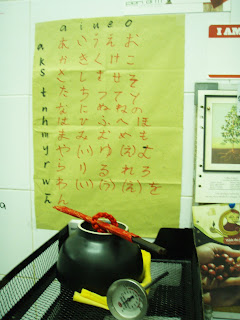 a i u e o
a あ い う え お
k か き く け こ
s さ し す せ そ
t た ち つ て と
n な に ぬ ね の
h は ひ ふ へ ほ
m ま み む め も
y や (い) ゆ (え) よ
r ら り る れ ろ
w わ (い) (う) (え) を
n ん
I AM